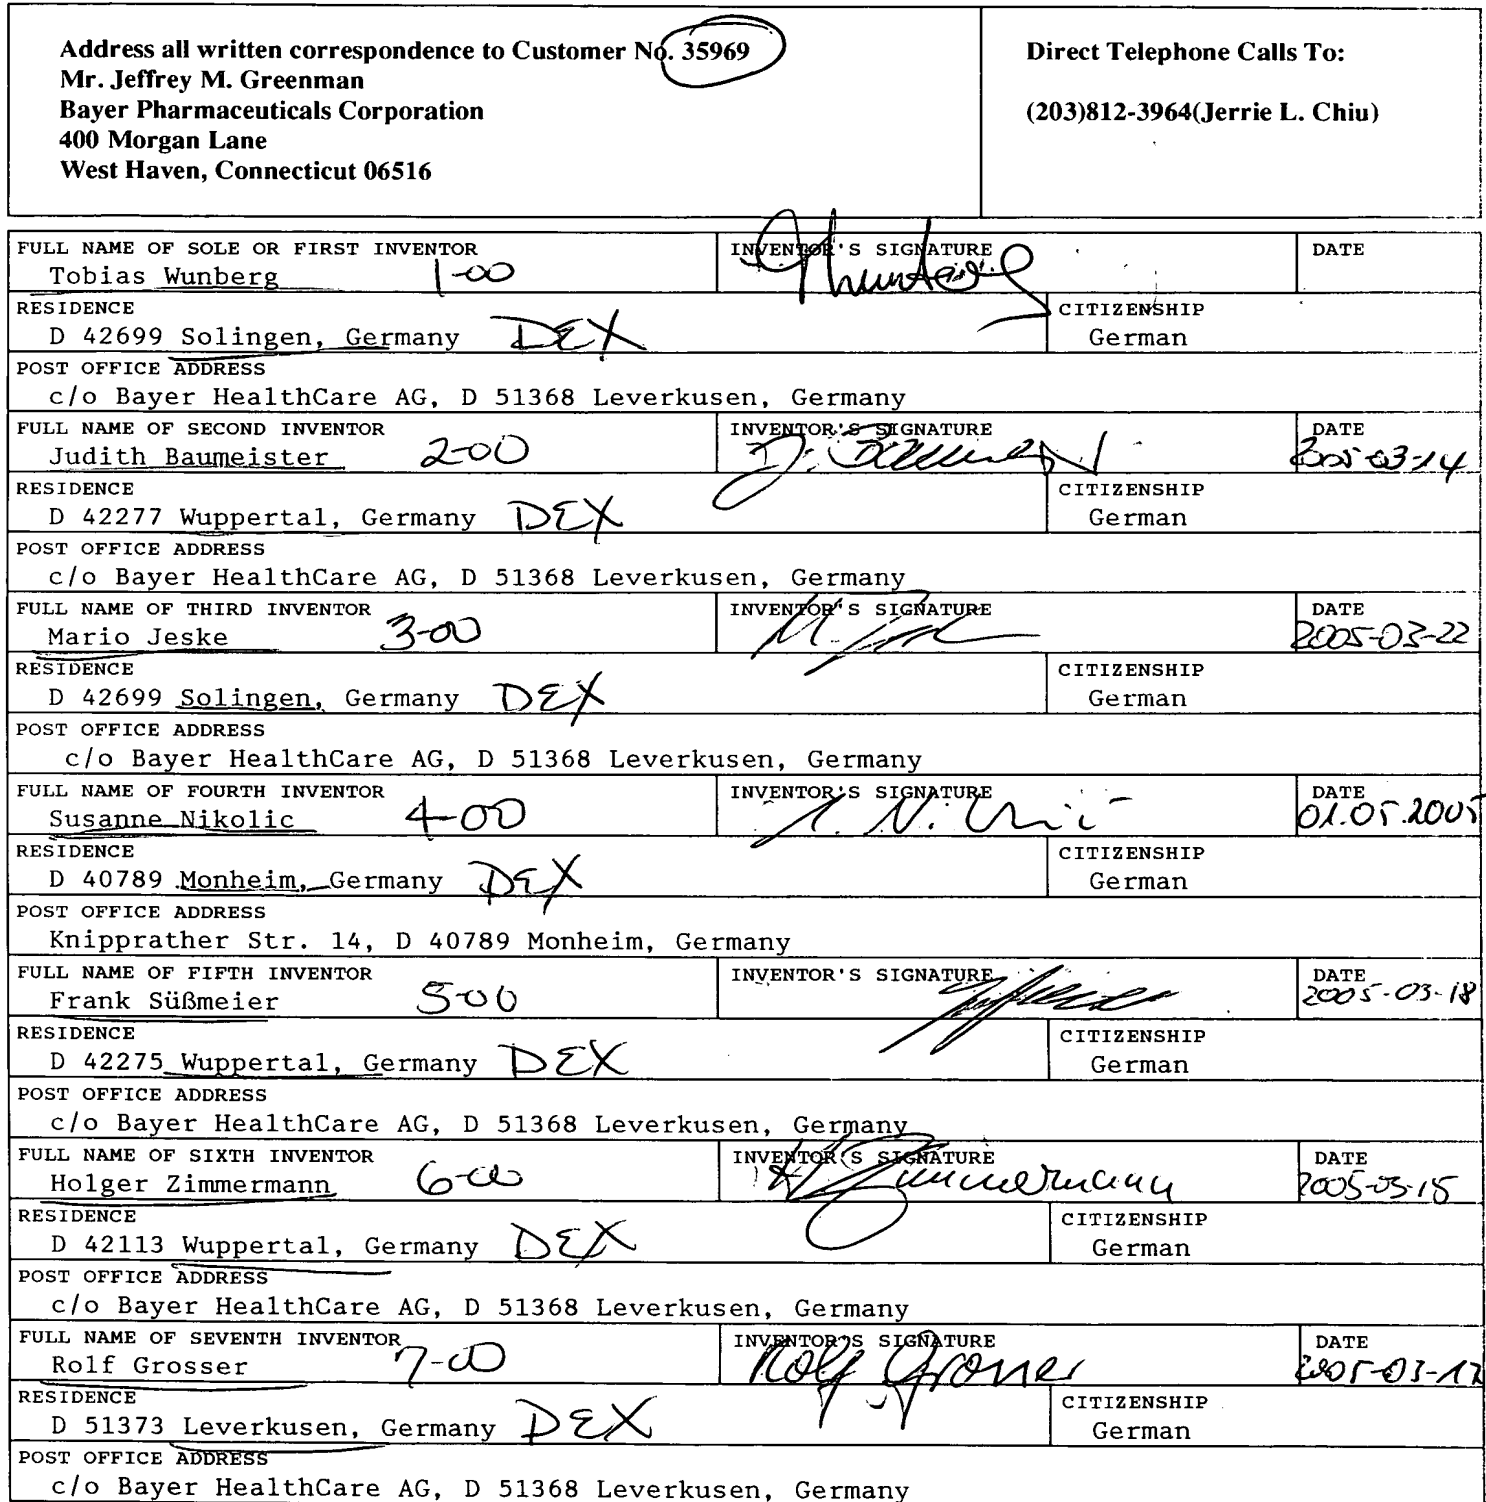 Address all written correspondence to Customer No. 35969
Mr. Jeffrey M. Greenman
Bayer Pharmaceuticals Corporation
400 Morgan Lane
West Haven, Connecticut 06516
Direct Telephone Calls To:
(203)812-3964(Jerrie L. Chiu)
FULL NAME OF SOLE OR FIRST INVENTOR
Tobias Wunberg 1-00
INVENTOR'S SIGNATURE
DATE
RESIDENCE
D 42699 Solingen, Germany DEX
CITIZENSHIP
German
POST OFFICE ADDRESS
c/o Bayer HealthCare AG, D 51368 Leverkusen, Germany
FULL NAME OF SECOND INVENTOR
Judith Baumeister 2-00
INVENTOR'S SIGNATURE
DATE
2005-03-14
RESIDENCE
D 42277 Wuppertal, Germany DEX
CITIZENSHIP
German
POST OFFICE ADDRESS
c/o Bayer HealthCare AG, D 51368 Leverkusen, Germany
FULL NAME OF THIRD INVENTOR
Mario Jeske 3-00
INVENTOR'S SIGNATURE
DATE
2005-03-22
RESIDENCE
D 42699 Solingen, Germany DEX
CITIZENSHIP
German
POST OFFICE ADDRESS
c/o Bayer HealthCare AG, D 51368 Leverkusen, Germany
FULL NAME OF FOURTH INVENTOR
Susanne Nikolic 4-00
INVENTOR'S SIGNATURE
DATE
01.05.2005
RESIDENCE
D 40789 Monheim, Germany DEX
CITIZENSHIP
German
POST OFFICE ADDRESS
Knipprather Str. 14, D 40789 Monheim, Germany
FULL NAME OF FIFTH INVENTOR
Frank Süßmeier 5-00
INVENTOR'S SIGNATURE
DATE
2005-03-18
RESIDENCE
D 42275 Wuppertal, Germany DEX
CITIZENSHIP
German
POST OFFICE ADDRESS
c/o Bayer HealthCare AG, D 51368 Leverkusen, Germany
FULL NAME OF SIXTH INVENTOR
Holger Zimmermann 6-00
INVENTOR'S SIGNATURE
H Zimmermann
DATE
2005-03-15
RESIDENCE
D 42113 Wuppertal, Germany DEX
CITIZENSHIP
German
POST OFFICE ADDRESS
c/o Bayer HealthCare AG, D 51368 Leverkusen, Germany
FULL NAME OF SEVENTH INVENTOR
Rolf Grosser 7-00
INVENTOR'S SIGNATURE
Rolf Grosser
DATE
2005-03-17
RESIDENCE
D 51373 Leverkusen, Germany DEX
CITIZENSHIP
German
POST OFFICE ADDRESS
c/o Bayer HealthCare AG, D 51368 Leverkusen, Germany